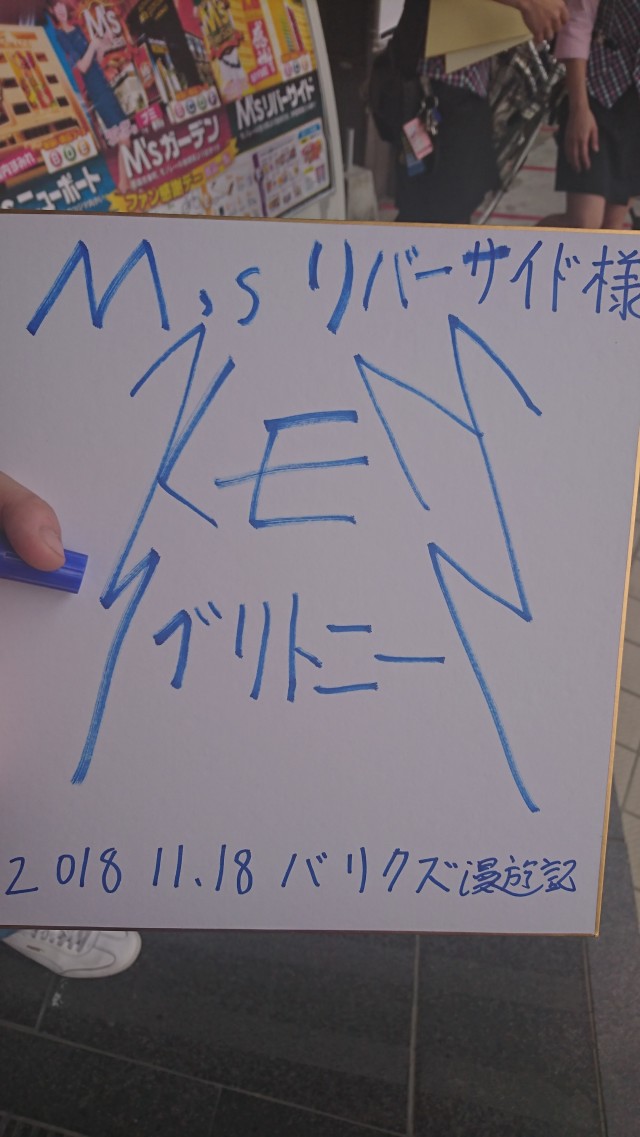 M's
Mʼsガーデン
Mʼsリバーサイド
ニューポート
ファン感謝デー
M,s リバーサイド様
KEN
ブリトニー
2018 11.18 バリクズ漫遊記